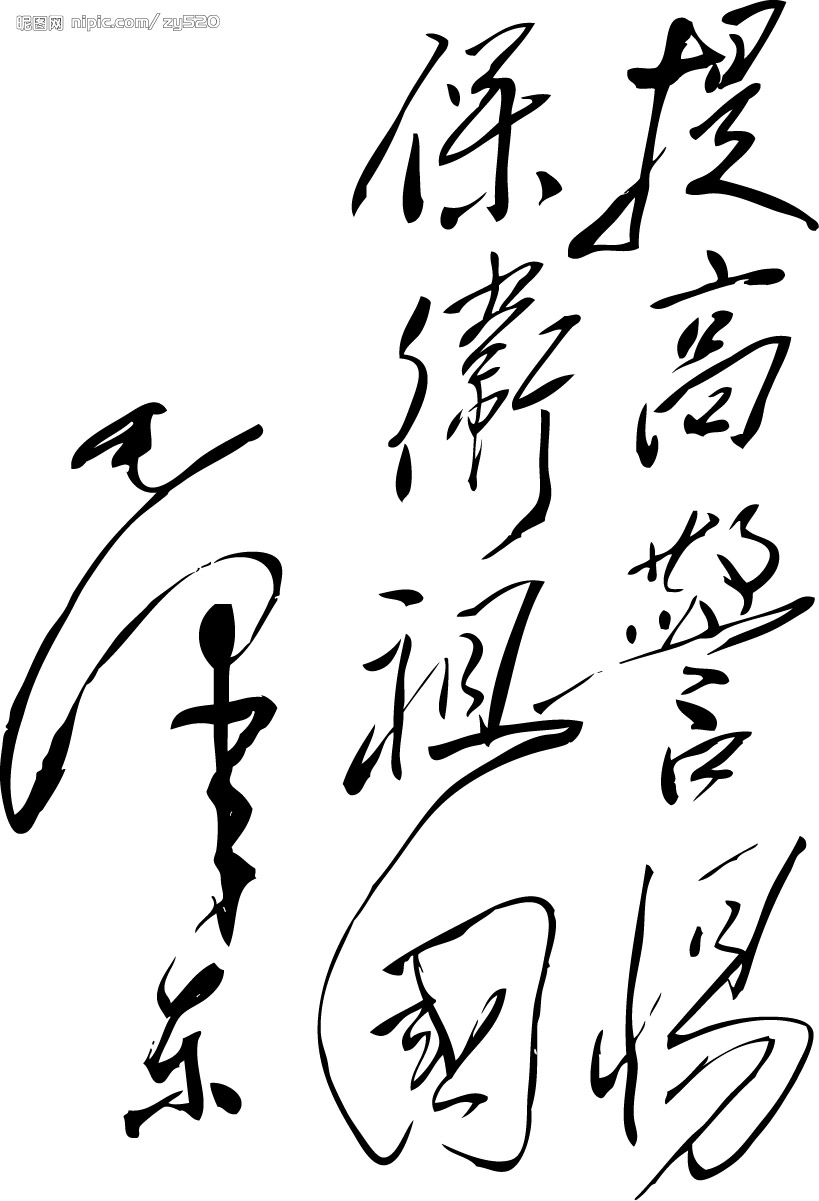 昵图网 nipic.com/zy520
提高警惕
保衛祖國
毛泽东